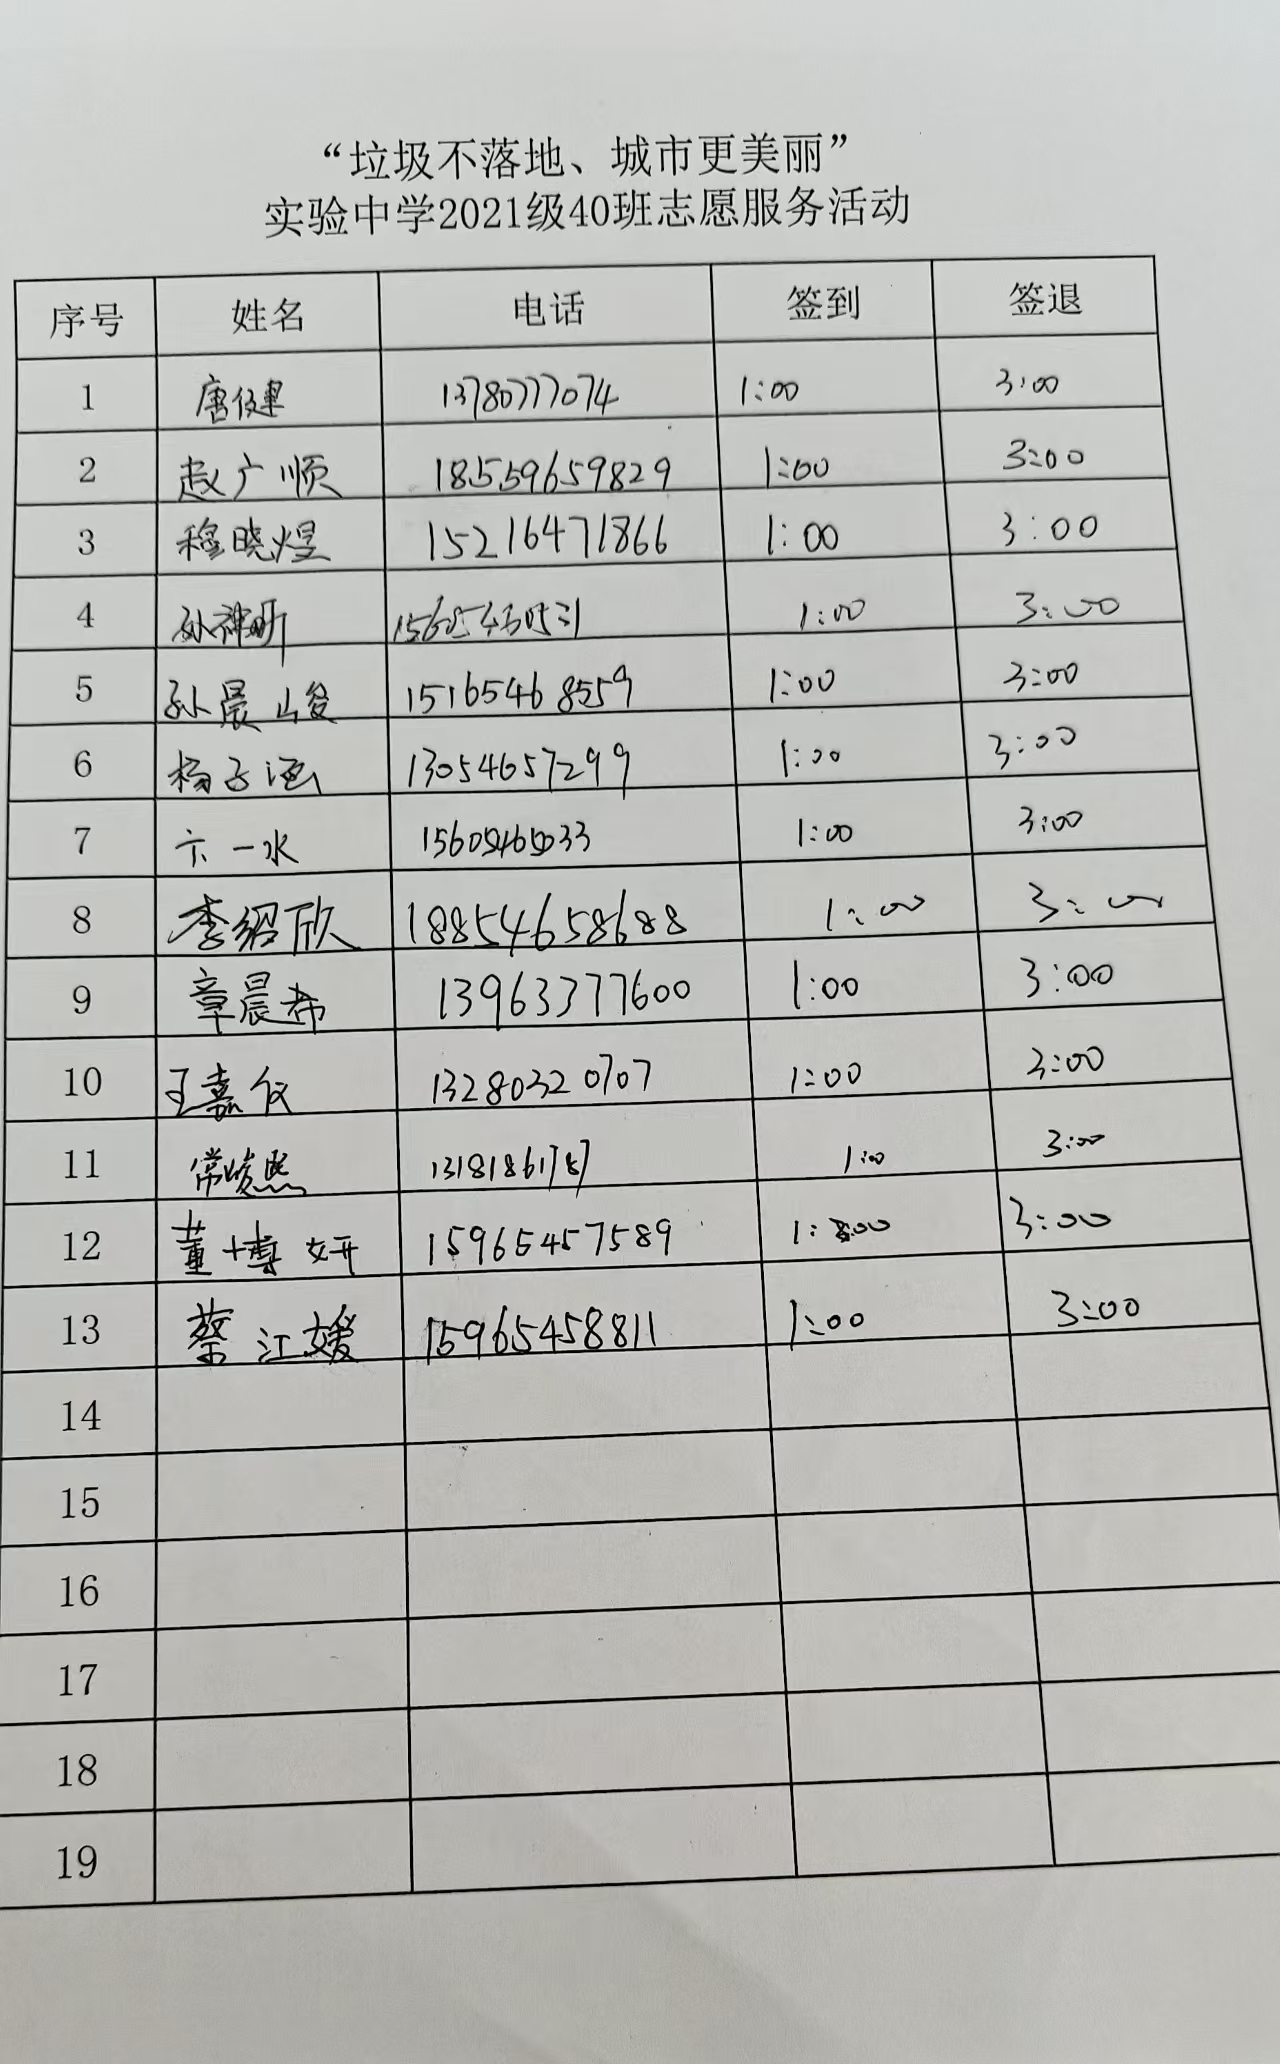 “垃圾不落地、城市更美丽”
实验中学2021级40班志愿服务活动
序号 姓名 电话 签到 签退
1 唐健 13780777074 1:00 3:00
2 赵广顺 18559659829 1:00 3:00
3 穆晓煜 15216471866 1:00 3:00
4 1:00 3:00
5 孙晨峻 15165468559 1:00 3:00
6 杨子涵 13054657299 1:00 3:00
7 一水 1:00 3:00
8 李绍欣 18854658688 1:00 3:00
9 章晨希 13963377600 1:00 3:00
10 王嘉仪 13280320707 1:00 3:00
11 常峻熙 13181861787 1:00 3:00
12 董博妍 15965457589 1:00 3:00
13 蔡江媛 15965458811 1:00 3:00
14
15
16
17
18
19